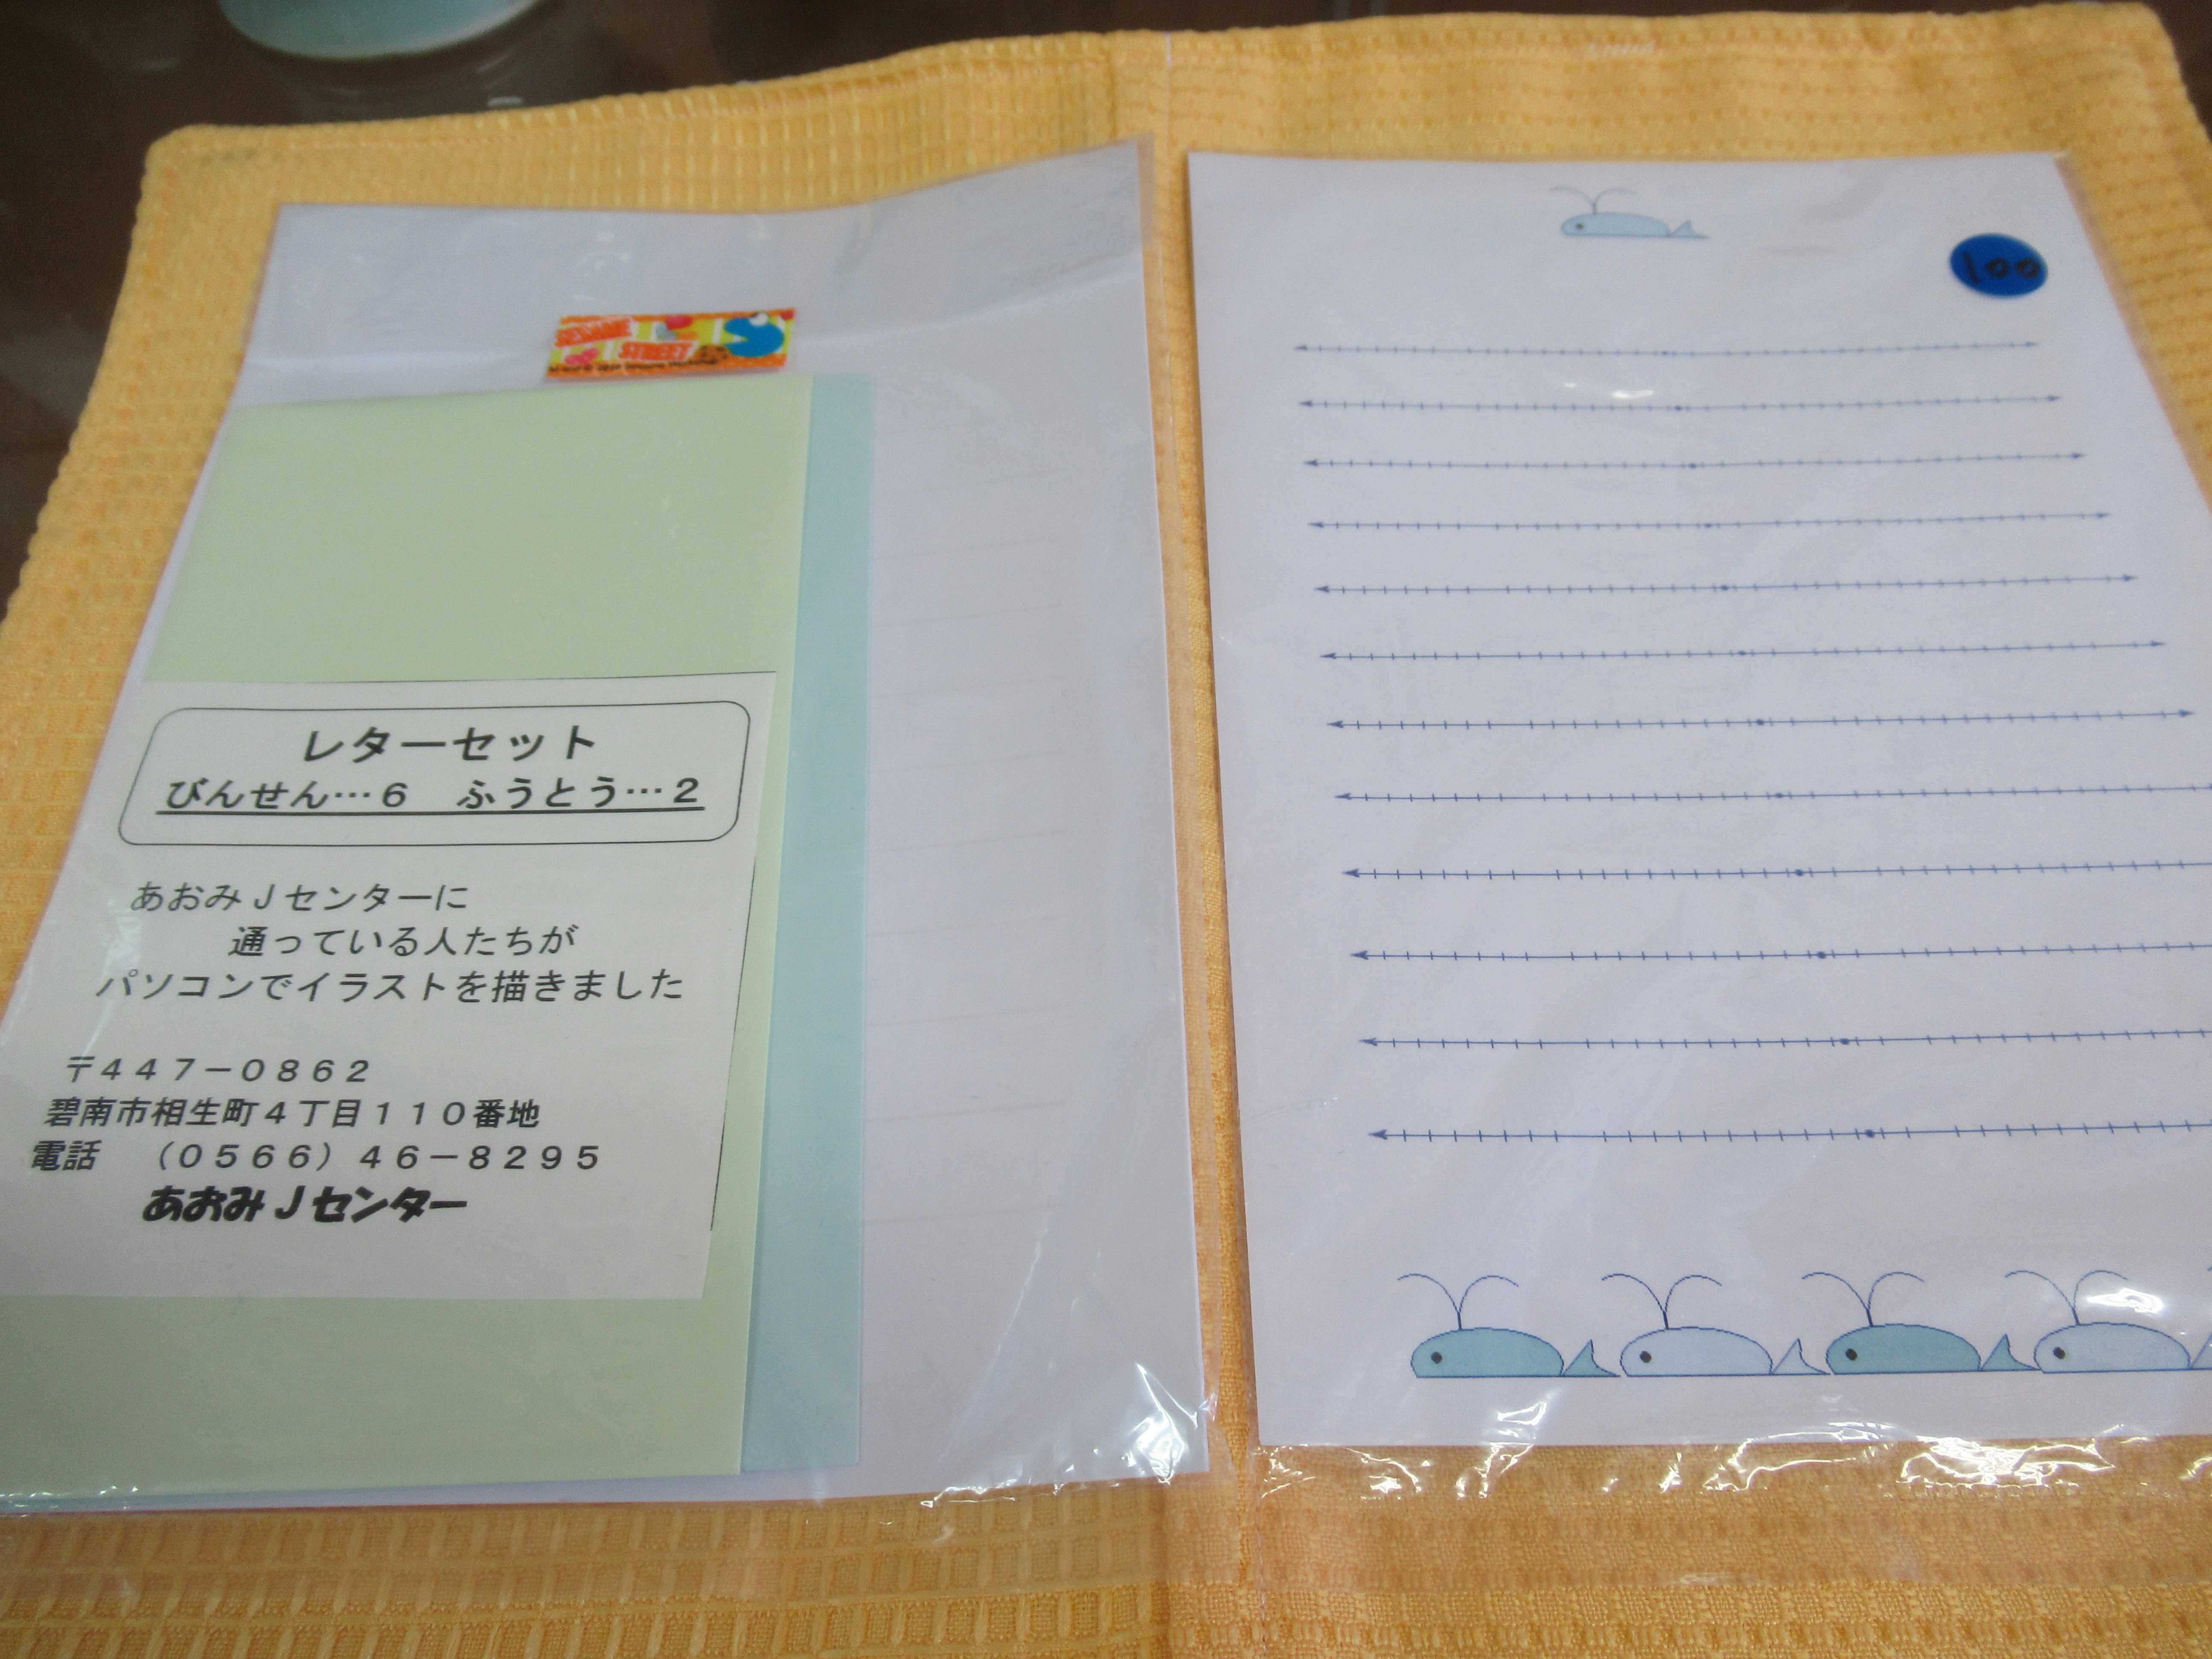 SESAME
STREET
レターセット
びんせん…6　ふうとう…2
あおみJセンターに
通っている人たちが
パソコンでイラストを描きました
〒447－0862
碧南市相生町4丁目110番地
電話　（0566）46－8295
あおみJセンター
100